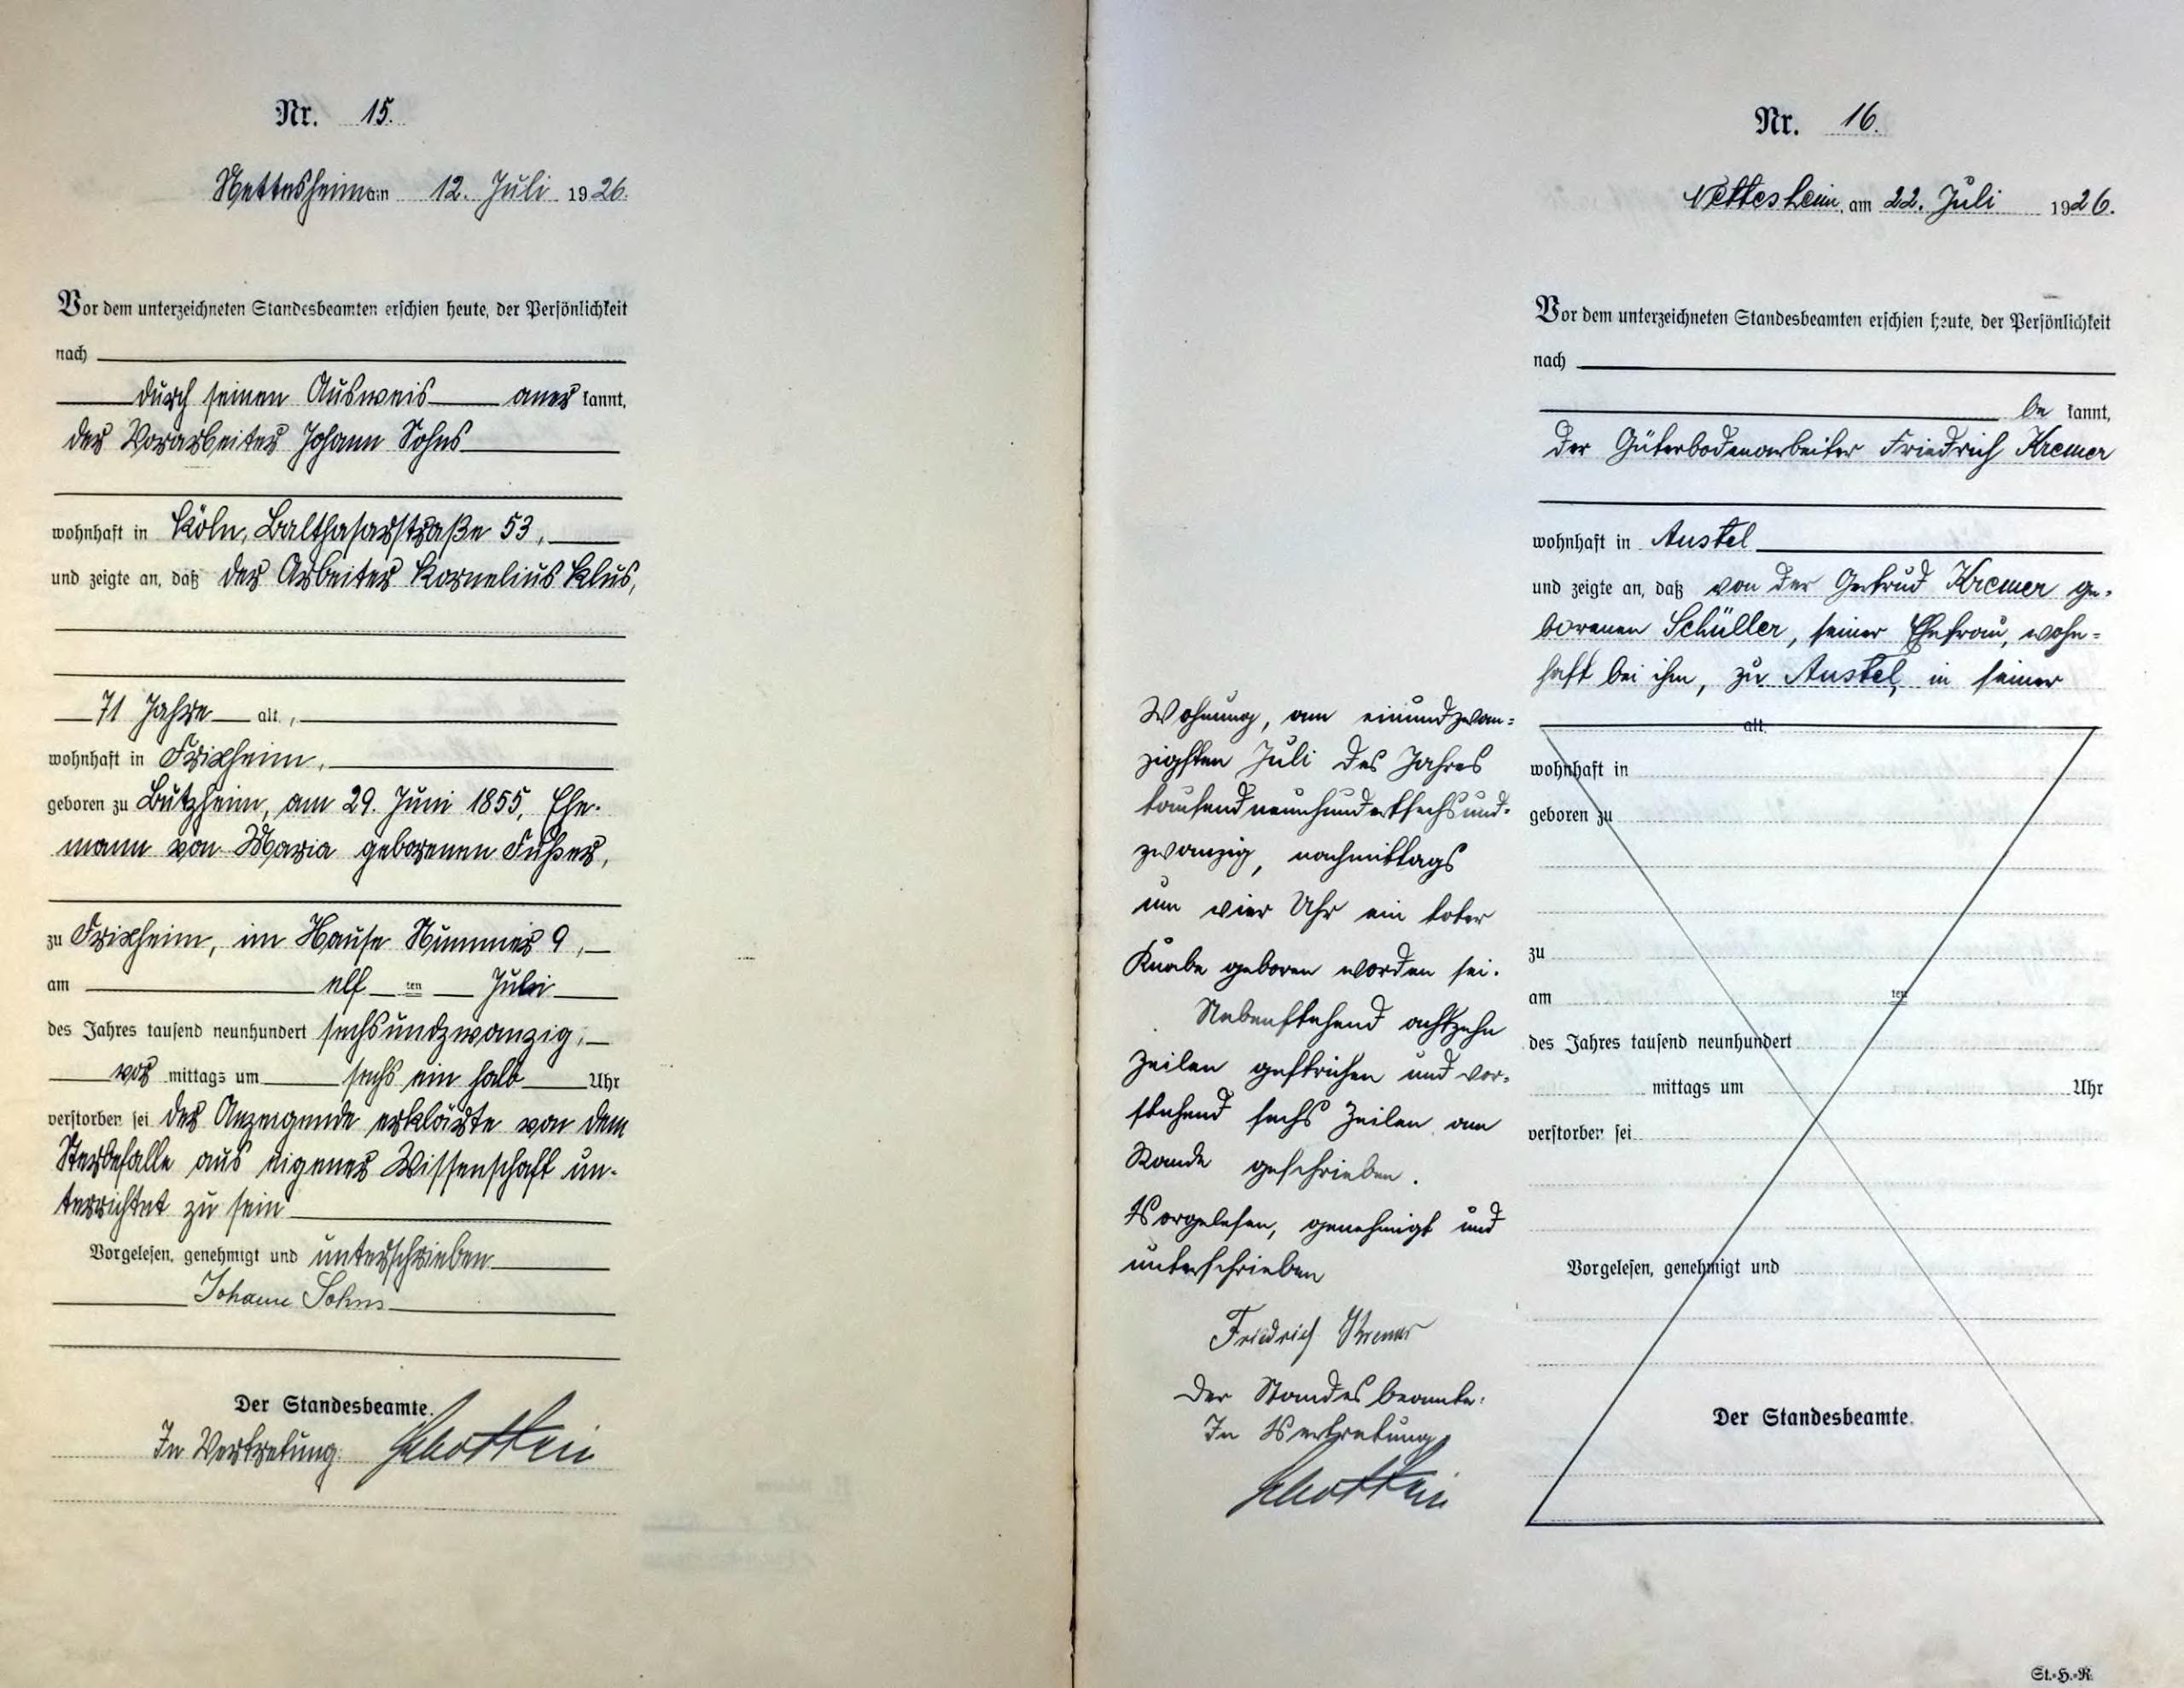 Nr. 15.
Nettesheim am 12. Juli 1926.
Vor dem unterzeichneten Standesbeamten erschien heute, der Persönlichkeit
nach
durch seinen Ausweis aner kannt,
der Vorarbeiter Johann Sohns
wohnhaft in Köln, Balthasarstraße 53,
und zeigte an, daß der Arbeiter Kornelius Klus,
71 Jahre alt,
wohnhaft in Frixheim,
geboren zu Butzheim, am 29. Juni 1855, Ehe-
mann von Maria geborenen Fußer,
zu Frixheim, im Hause Nummer 9,
am elf ten Juli
des Jahres tausend neunhundert sechsundzwanzig,
vor mittags um sechs ein halb Uhr
verstorben sei der Anzeigende erklärte von dem
Sterbefalle aus eigener Wissenschaft un-
terrichtet zu sein
Vorgelesen, genehmigt und unterschrieben
Johann Sohns
Der Standesbeamte.
In Vertretung:
Nr. 16.
Nettesheim, am 22. Juli 1926.
Vor dem unterzeichneten Standesbeamten erschien heute, der Persönlichkeit
nach
be kannt,
der Güterbodenarbeiter Friedrich Kremer
wohnhaft in Anstel
und zeigte an, daß von der Gertrud Kremer ge-
borenen Schüller, seiner Ehefrau, wohn-
haft bei ihm, zu Anstel, in seiner
Wohnung, am einundzwan-
zigsten Juli des Jahres
tausendneunhundertsechsund-
zwanzig, nachmittags
um vier Uhr ein toter
Knabe geboren worden sei.
Nebenstehend achtzehn
Zeilen gestrichen und vor-
stehend sechs Zeilen am
Rande geschrieben.
Vorgelesen, genehmigt und
unterschrieben
Friedrich Kremer
Der Standesbeamte:
In Vertretung
alt,
wohnhaft in
geboren zu
zu
am ten
des Jahres tausend neunhundert
mittags um Uhr
verstorben sei
Vorgelesen, genehmigt und
Der Standesbeamte.
St.-H.-R.